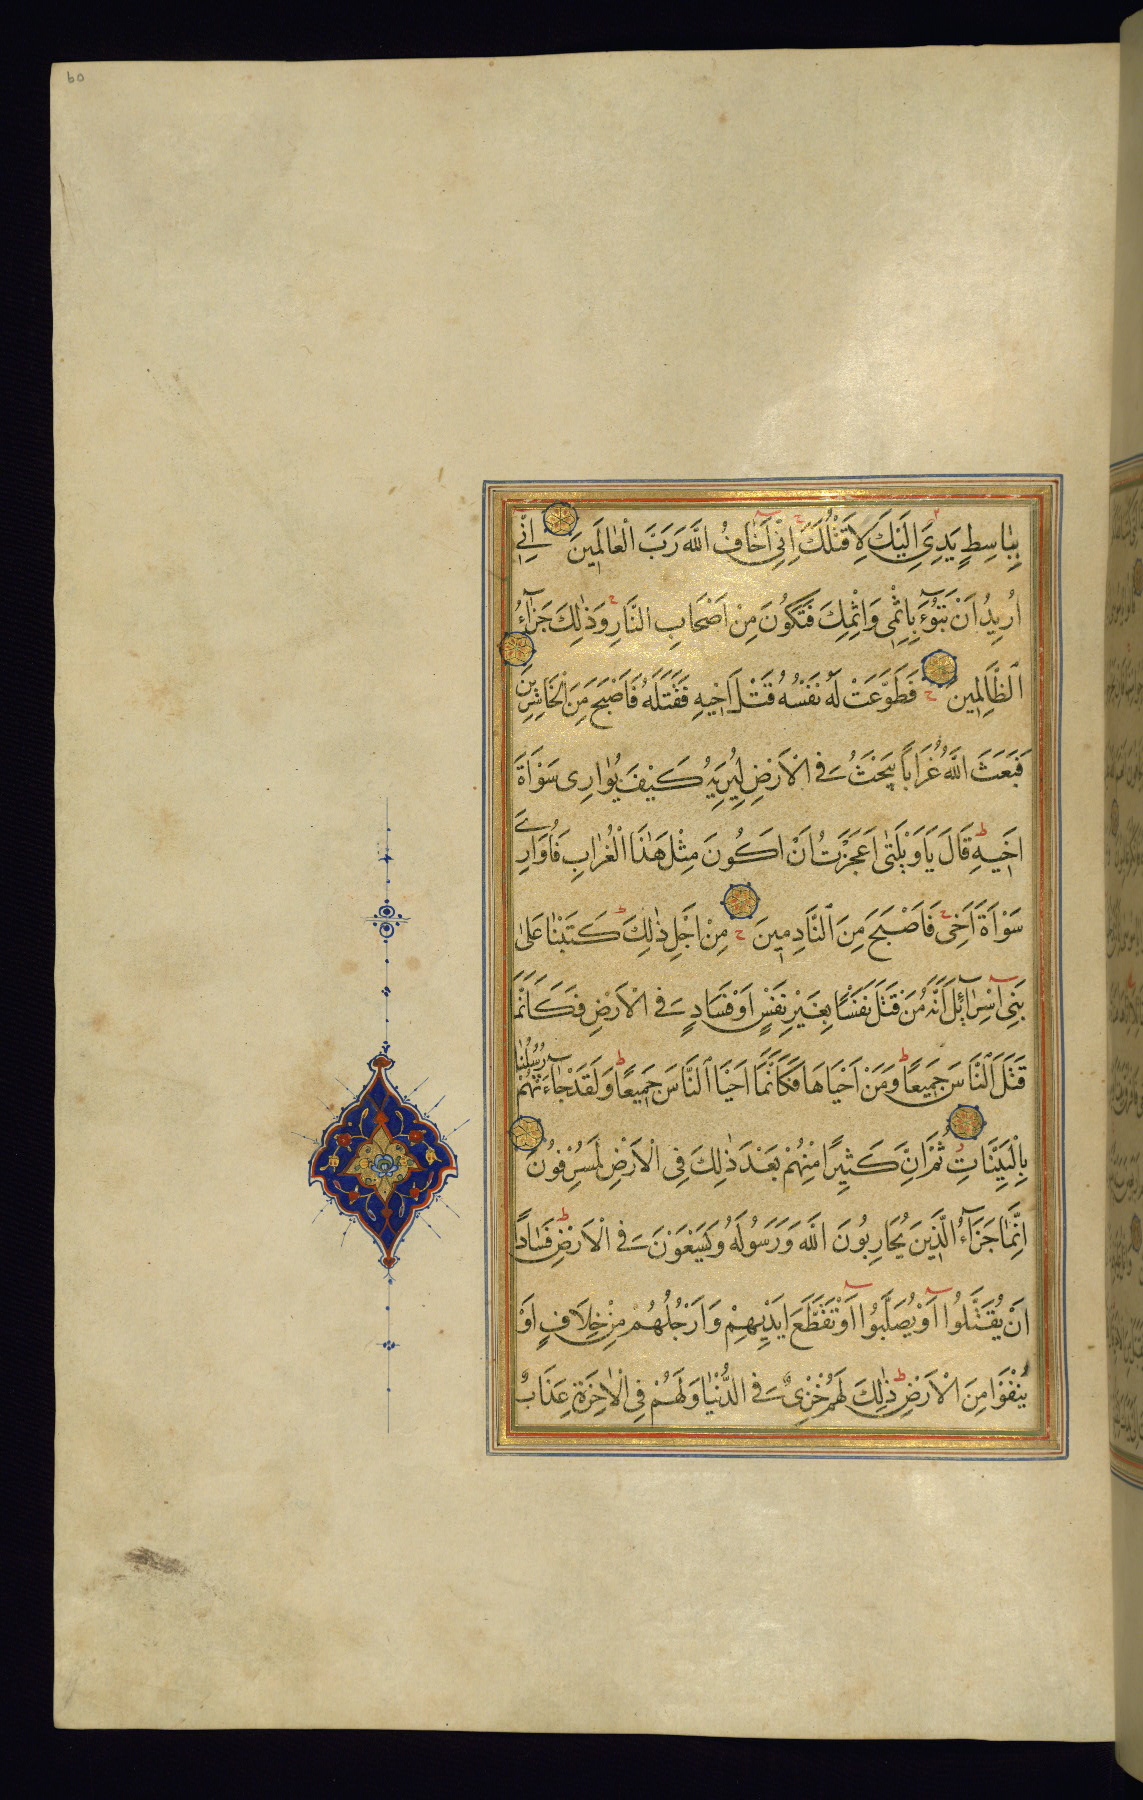 60
بِبَاسِطٍ يَدِيَ اِلَيْكَ لِاَقْتُلَكَ اِنّٖى اَخَافُ اللّٰهَ رَبَّ الْعَالَمِينَ اِنّٖى
اُرِيدُ اَنْ تَبُوٓءَ بِاِثْمٖى وَاِثْمِكَ فَتَكُونَ مِنْ اَصْحَابِ النَّارِ وَذٰلِكَ جَزَٓاءُ
الظَّالِمِينَ فَطَوَّعَتْ لَهُ نَفْسُهُ قَتْلَ اَخٖيهِ فَقَتَلَهُ فَاَصْبَحَ مِنَ الْخَاسِرِينَ
فَبَعَثَ اللّٰهُ غُرَابًا يَبْحَثُ فِى الْاَرْضِ لِيُرِيَهُ كَيْفَ يُوَارِى سَوْاَةَ
اَخٖيهِ قَالَ يَا وَيْلَتٰى اَعَجَزْتُ اَنْ اَكُونَ مِثْلَ هٰذَا الْغُرَابِ فَاُوَارِىَ
سَوْاَةَ اَخٖى فَاَصْبَحَ مِنَ النَّادِمِينَ مِنْ اَجْلِ ذٰلِكَ كَتَبْنَا عَلٰى
بَنِٓى اِسْرَٓائِلَ اَنَّهُ مَنْ قَتَلَ نَفْسًا بِغَيْرِ نَفْسٍ اَوْ فَسَادٍ فِى الْاَرْضِ فَكَاَنَّمَا
قَتَلَ النَّاسَ جَمِيعًا وَمَنْ اَحْيَاهَا فَكَاَنَّمَا اَحْيَا النَّاسَ جَمِيعًا وَلَقَدْ جَٓاءَتْهُمْ رُسُلُنَا
بِالْبَيِّنَاتِ ثُمَّ اِنَّ كَثِيرًا مِنْهُمْ بَعْدَ ذٰلِكَ فِى الْاَرْضِ لَمُسْرِفُونَ
اِنَّمَا جَزَٓاءُ الَّذِينَ يُحَارِبُونَ اللّٰهَ وَرَسُولَهُ وَيَسْعَوْنَ فِى الْاَرْضِ فَسَادًا
اَنْ يُقَتَّلُوا اَوْ يُصَلَّبُوا اَوْ تُقَطَّعَ اَيْدِيهِمْ وَاَرْجُلُهُمْ مِنْ خِلَافٍ اَوْ
يُنْفَوْا مِنَ الْاَرْضِ ذٰلِكَ لَهُمْ خِزْىٌ فِى الدُّنْيَا وَلَهُمْ فِى الْاٰخِرَةِ عَذَابٌ